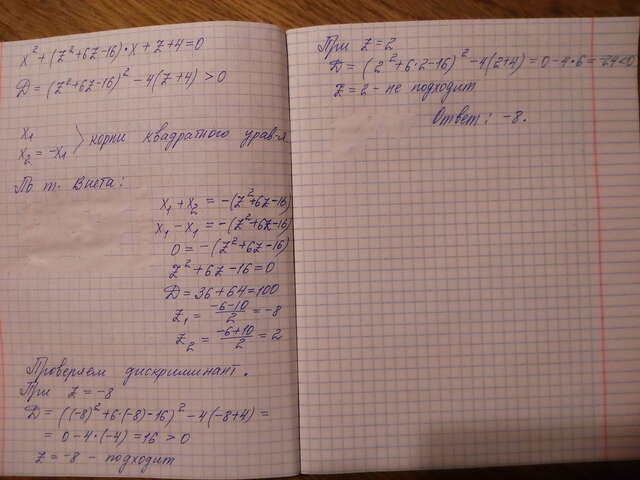 x² + (z²+6z-16)·x + z+4=0
D = (z²+6z-16)² - 4(z+4) > 0
x₁
x₂ = -x₁ > корни квадратного урав-я
По т. Виета:
x₁ + x₂ = -(z²+6z-16)
x₁ - x₁ = -(z²+6z-16)
0 = -(z²+6z-16)
z²+6z-16=0
D = 36+64=100
z₁ = (-6-10)/2 = -8
z₂ = (-6+10)/2 = 2
Проверяем дискриминант.
При z = -8
D = ((-8)²+6·(-8)-16)² - 4(-8+4) =
= 0-4·(-4)=16 > 0
z = -8 - подходит
При z = 2
D = (2²+6·2-16)² - 4(2+4) = 0-4·6=-24<0
z = 2 - не подходит
Ответ: -8.